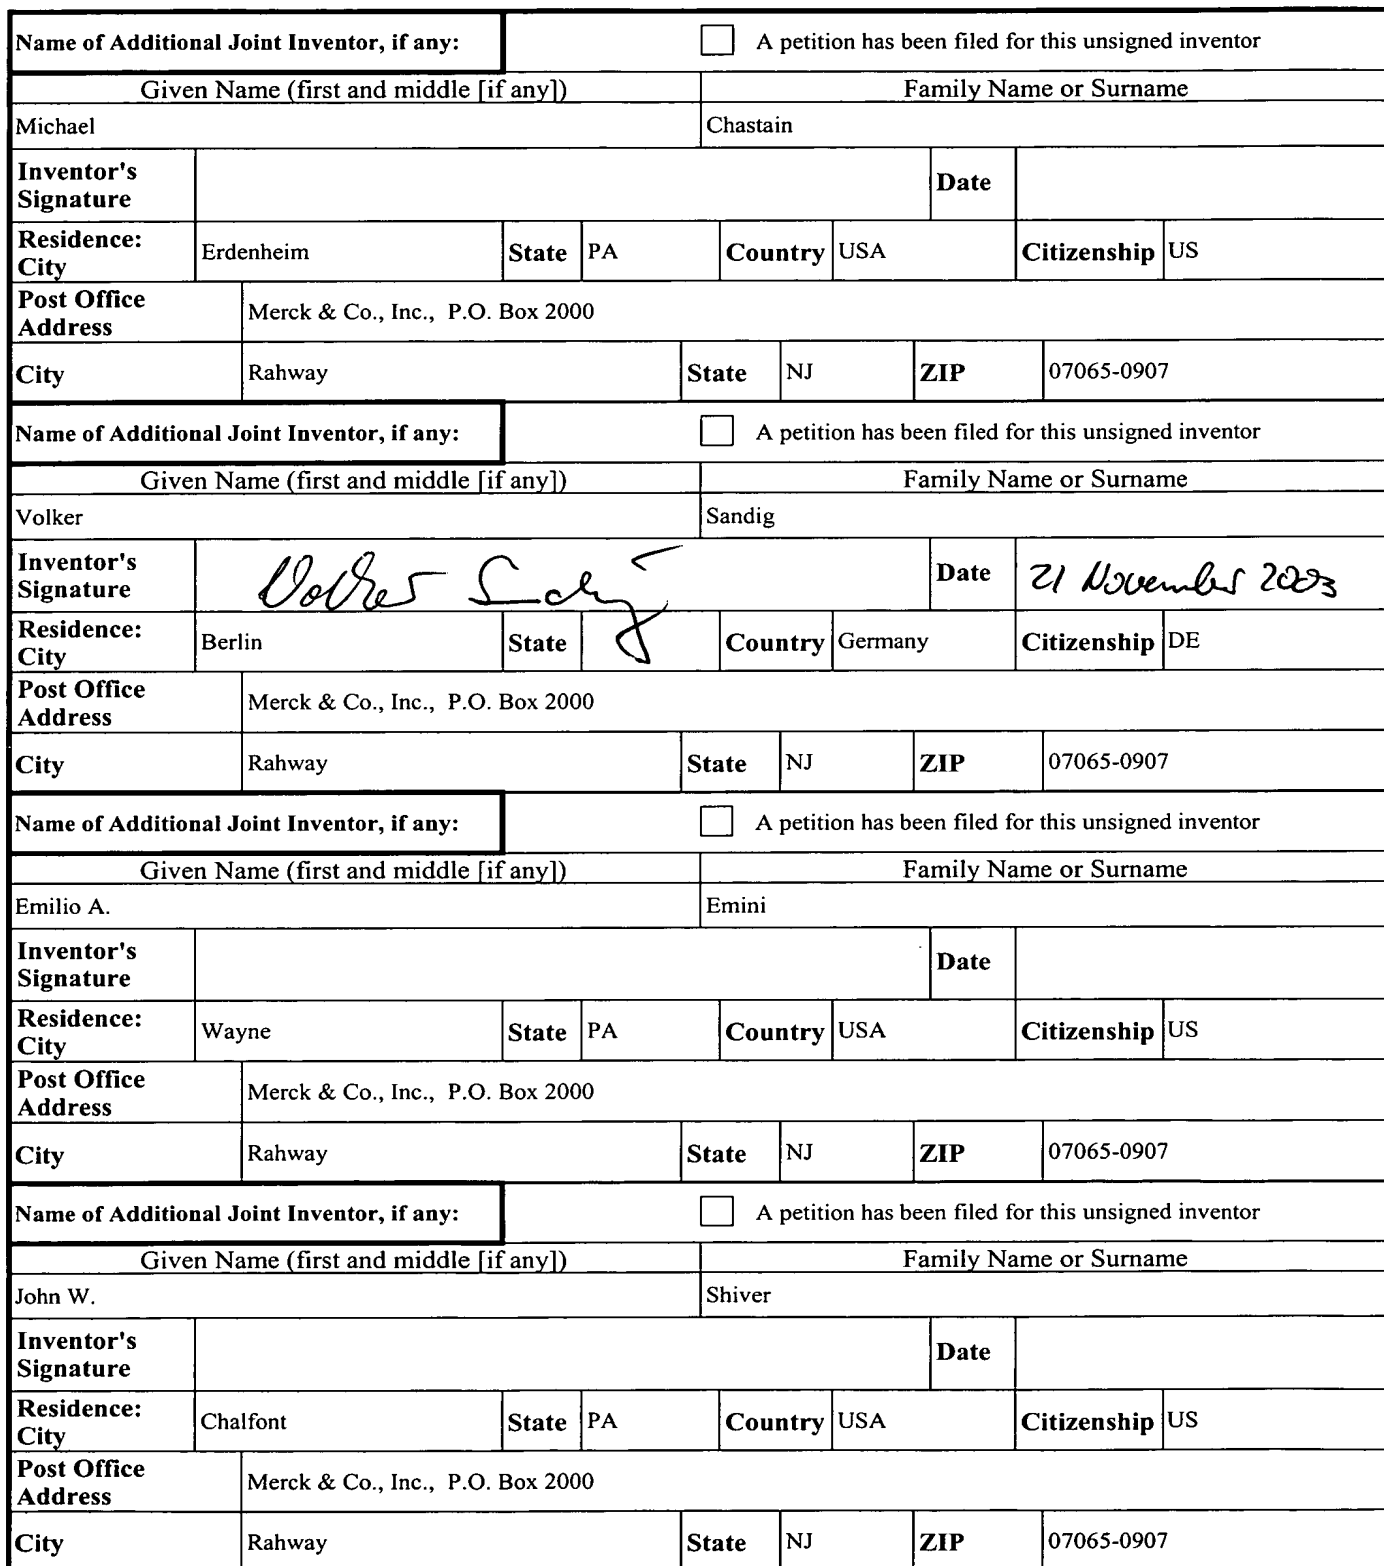 Name of Additional Joint Inventor, if any: A petition has been filed for this unsigned inventor
Given Name (first and middle [if any]) Family Name or Surname
Michael Chastain
Inventor's Signature Date
Residence: City Erdenheim State PA Country USA Citizenship US
Post Office Address Merck & Co., Inc., P.O. Box 2000
City Rahway State NJ ZIP 07065-0907
Name of Additional Joint Inventor, if any: A petition has been filed for this unsigned inventor
Given Name (first and middle [if any]) Family Name or Surname
Volker Sandig
Inventor's Signature Volker Sandig Date 21 November 2003
Residence: City Berlin State Country Germany Citizenship DE
Post Office Address Merck & Co., Inc., P.O. Box 2000
City Rahway State NJ ZIP 07065-0907
Name of Additional Joint Inventor, if any: A petition has been filed for this unsigned inventor
Given Name (first and middle [if any]) Family Name or Surname
Emilio A. Emini
Inventor's Signature Date
Residence: City Wayne State PA Country USA Citizenship US
Post Office Address Merck & Co., Inc., P.O. Box 2000
City Rahway State NJ ZIP 07065-0907
Name of Additional Joint Inventor, if any: A petition has been filed for this unsigned inventor
Given Name (first and middle [if any]) Family Name or Surname
John W. Shiver
Inventor's Signature Date
Residence: City Chalfont State PA Country USA Citizenship US
Post Office Address Merck & Co., Inc., P.O. Box 2000
City Rahway State NJ ZIP 07065-0907